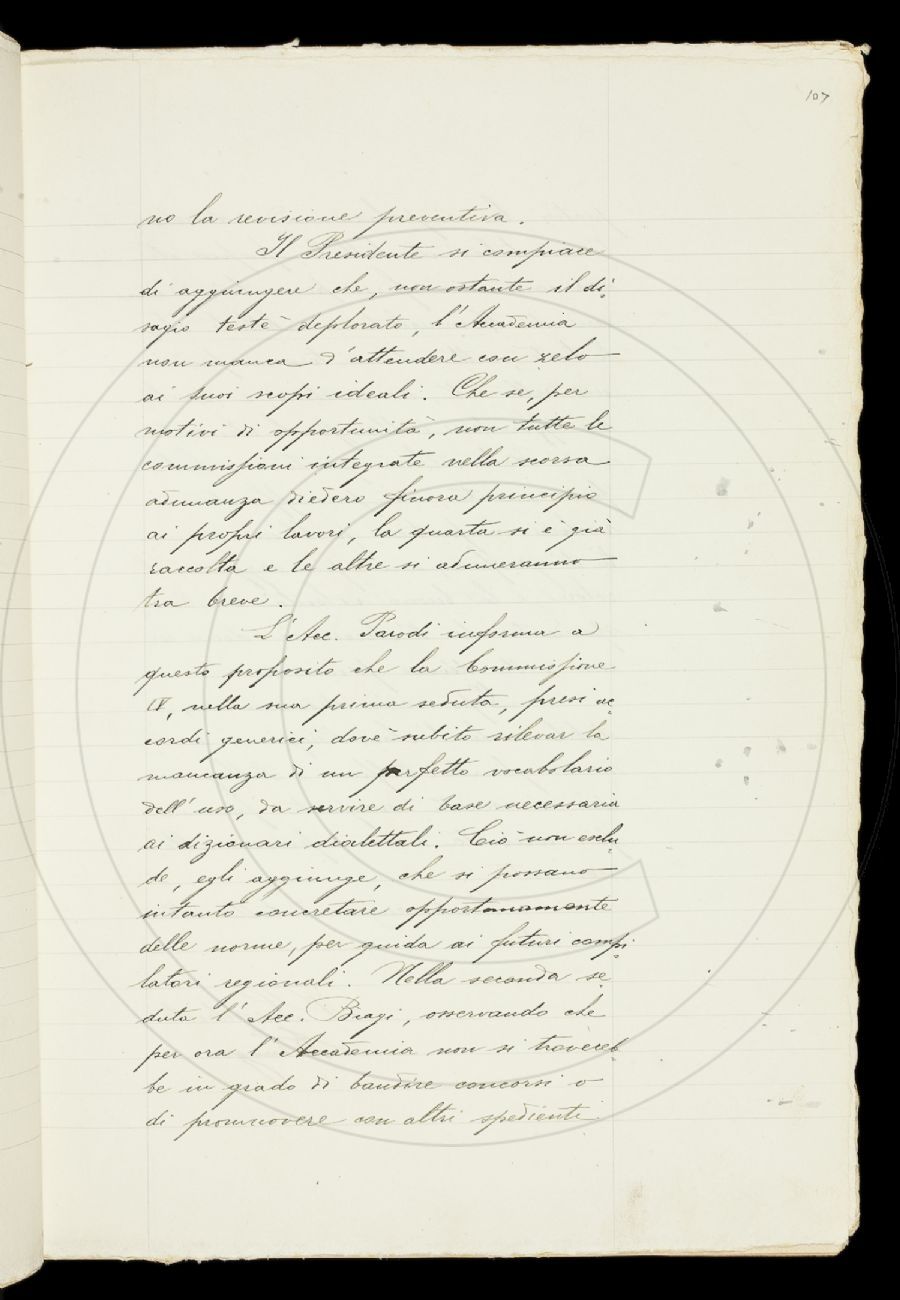 107
no la revisione preventiva.
Il Presidente si compiace
di aggiungere che, non ostante il di-
sagio testè deplorato, l'Accademia
non manca d'attendere con zelo
ai suoi scopi ideali. Che se, per
motivi di opportunità, non tutte le
commissioni integrate nella scorsa
adunanza diedero finora principio
ai propri lavori, la quarta si è già
raccolta e le altre si aduneranno
tra breve.
L'Acc. Parodi informa a
questo proposito che la Commissione
IV, nella sua prima seduta, presi ac-
cordi generici, dovè subito rilevar la
mancanza di un perfetto vocabolario
dell'uso, da servire di base necessaria
ai dizionari dialettali. Ciò non esclu-
de, egli aggiunge, che si possano
intanto concretare opportunamente
delle norme, per guida ai futuri compi-
latori regionali. Nella seconda se-
duta l'Acc. Biagi, osservando che
per ora l'Accademia non si trovereb-
be in grado di bandire concorsi o
di promuovere con altri spedienti